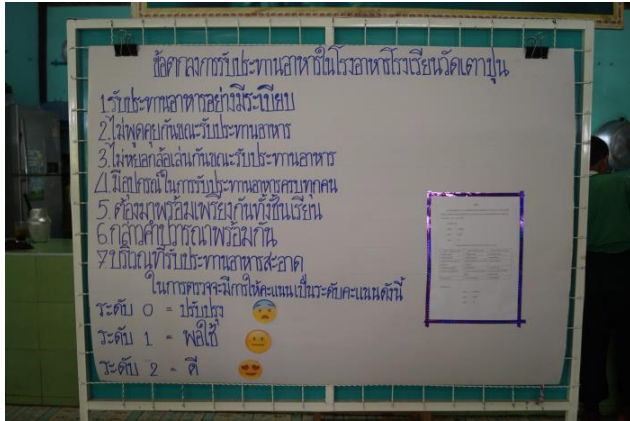 ข้อตกลงการรับประทานอาหารในโรงอาหารโรงเรียนวัดเตาปูน
1.รับประทานอาหารอย่างมีระเบียบ
2.ไม่พูดคุยกันขณะรับประทานอาหาร
3.ไม่หยอกล้อเล่นกันขณะรับประทานอาหาร
4.มีอุปกรณ์ในการรับประทานอาหารครบทุกคน
5.ต้องมาพร้อมเพรียงกันทั้งชั้นเรียน
6.กล่าวคำปวารณาพร้อมกัน
7.บริเวณที่รับประทานอาหารสะอาด
ในการตรวจจะมีการให้คะแนนเป็นระดับคะแนนดังนี้
ระดับ 0 = ปรับปรุง
ระดับ 1 = พอใช้
ระดับ 2 = ดี